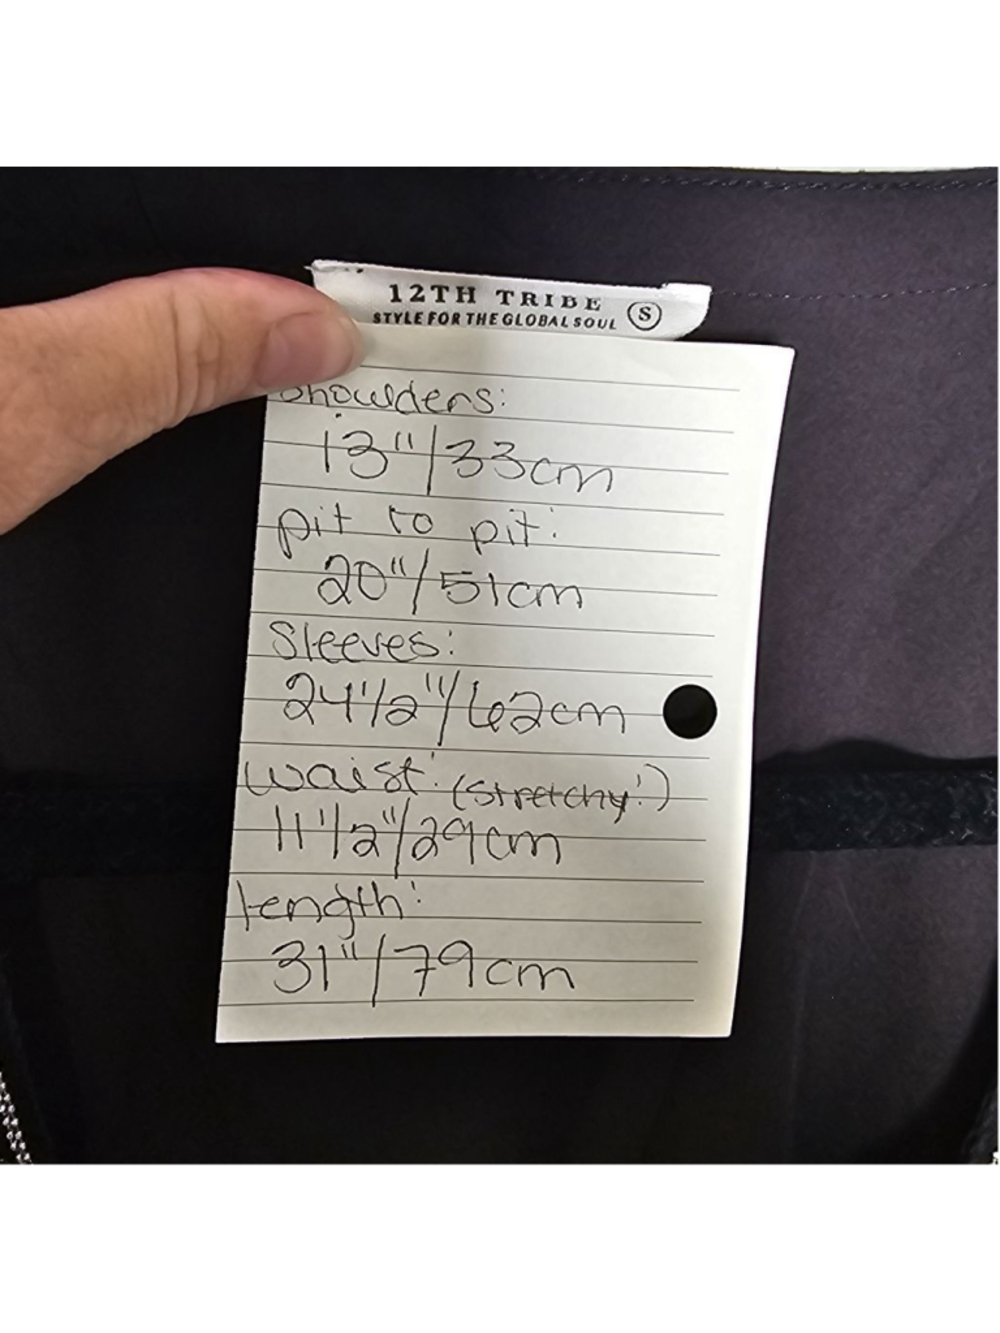 12TH TRIBE
STYLE FOR THE GLOBAL SOUL S
Shoulders:
13"/33cm
pit to pit:
20"/51cm
Sleeves:
24 1/2"/62cm
waist: (stretchy!)
11 1/2"/29cm
length:
31"/79cm